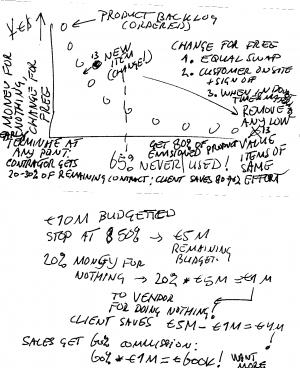 PRODUCT BACKLOG
(ORDERED)
13
NEW
ITEM
(CHANGE!)
CHANGE FOR FREE
1. EQUAL SWAP
2. CUSTOMER ON SITE
+ SIGN OFF
3. WHEN IN DOUBT
REMOVE
ANY LOW
VALUE
ITEMS OF
SAME
EFFORT
13
MONEY FOR
NOTHING,
CHANGE FOR
FREE
TERMINATE AT
ANY POINT:
CONTRACTOR GETS
20-30% OF REMAINING CONTRACT; CLIENT SAVES
GET 80% OF
ENVISIONED PRODUCT
65% NEVER USED!
€10M BUDGETTED
STOP AT 50% → €5M
REMAINING
BUDGET.
20% MONEY FOR
NOTHING → 20% * €5M = €1M
TO VENDOR
FOR DOING NOTHING!
CLIENT SAVES €5M - €1M = €4M
SALES GET 60% COMMISSION:
60% * €1M = €600K!
WANT
MORE